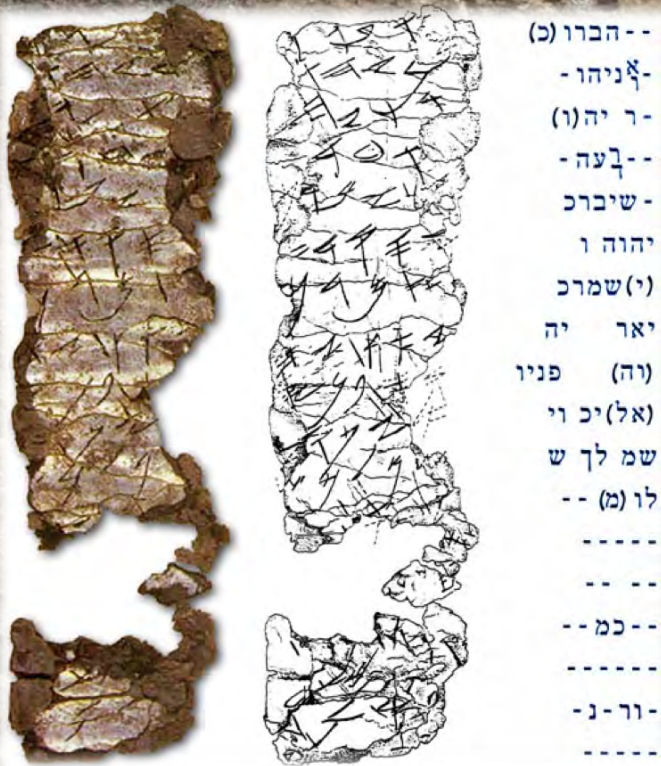 --הברו (כ)
-אניהו-
-ר יה(ו)
--רעה-
-שיברכ
יהוה ו
(י)שמרכ
יאר יה
(וה) פניו
(אל)יכ וי
שמ לך ש
לו (מ) --
-----
-- --
--כמ--
------
-ור-נ-
-----